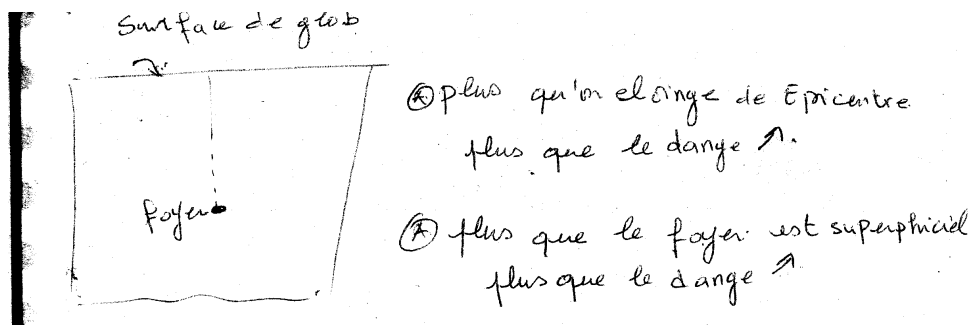 Surface de glob
Ⓐ plus qu'on eloinge de Epicentre
plus que le dange ↗.
foyer
Ⓐ plus que le foyer est superphiciel
plus que le dange ↗